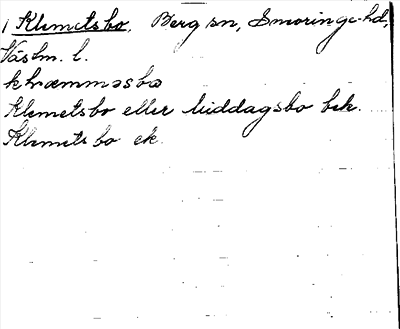 1 Klemetsbo, Berg sn, Snevringe hd,
Västm. l.
khræmməsbω
Klemetsbo eller Middagsbo bek.
Klemets bo ek.